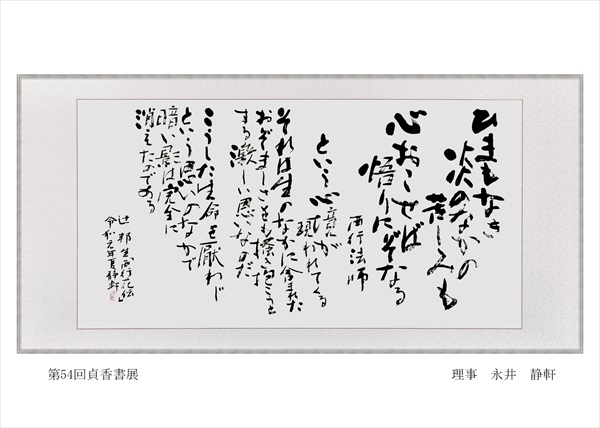 ひまもなき
炎のなかの
苦しみも
心おこせば
悟りにぞなる
西行法師
という心
現われてくる
それは生のなかに含まれた
おぞましさをも掻き抱こうと
する激しい思いなのだ
こうした生命を厭わじ
という思いのなかで
暗い影は完全に
消えたのである
辻邦生「西行花伝」
令和元年夏 静軒
第54回貞香書展
理事 永井 静軒